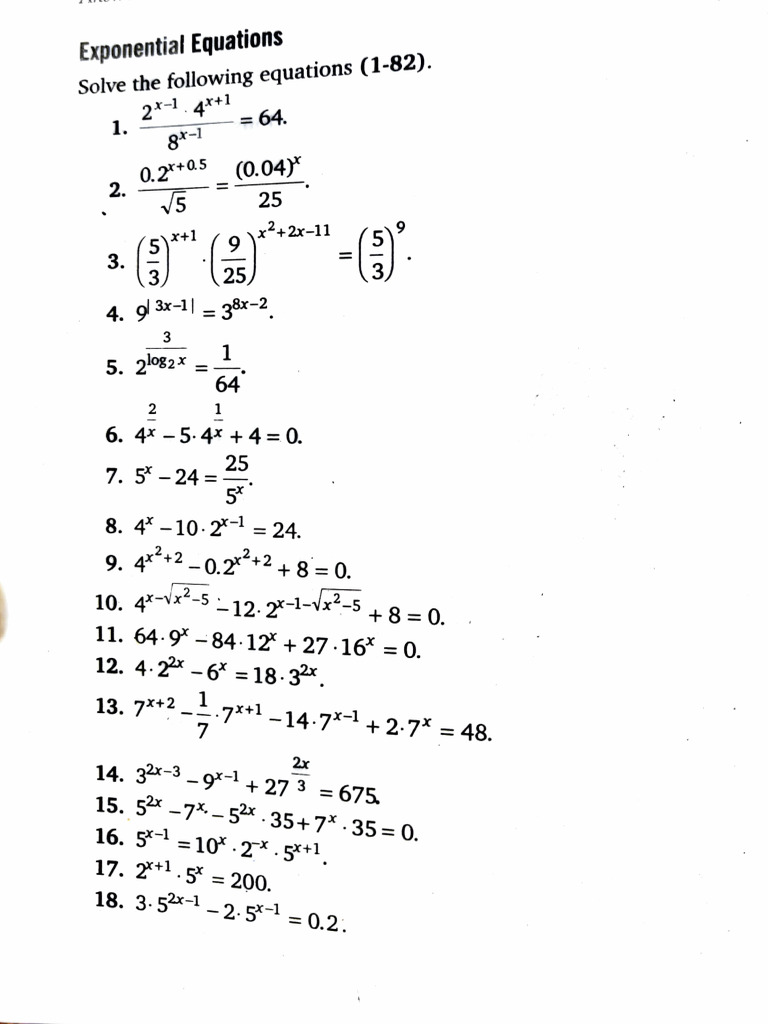 Exponential Equations
Solve the following equations (1-82).
1. \frac{2^{x-1} \cdot 4^{x+1}}{8^{x-1}} = 64.
2. \frac{0.2^{x+0.5}}{\sqrt{5}} = \frac{(0.04)^x}{25}.
3. \left(\frac{5}{3}\right)^{x+1} \cdot \left(\frac{9}{25}\right)^{x^2+2x-11} = \left(\frac{5}{3}\right)^9.
4. 9^{|3x-1|} = 3^{8x-2}.
5. 2^{\frac{3}{\log_2 x}} = \frac{1}{64}.
6. 4^{\frac{2}{x}} - 5 \cdot 4^{\frac{1}{x}} + 4 = 0.
7. 5^x - 24 = \frac{25}{5^x}.
8. 4^x - 10 \cdot 2^{x-1} = 24.
9. 4^{x^2+2} - 0.2^{x^2+2} + 8 = 0.
10. 4^{x-\sqrt{x^2-5}} - 12 \cdot 2^{x-1-\sqrt{x^2-5}} + 8 = 0.
11. 64 \cdot 9^x - 84 \cdot 12^x + 27 \cdot 16^x = 0.
12. 4 \cdot 2^{2x} - 6^x = 18 \cdot 3^{2x}.
13. 7^{x+2} - \frac{1}{7} \cdot 7^{x+1} - 14 \cdot 7^{x-1} + 2 \cdot 7^x = 48.
14. 3^{2x-3} - 9^{x-1} + 27^{\frac{2x}{3}} = 675.
15. 5^{2x} - 7^x - 5^{2x} \cdot 35 + 7^x \cdot 35 = 0.
16. 5^{x-1} = 10^x \cdot 2^{-x} \cdot 5^{x+1}.
17. 2^{x+1} \cdot 5^x = 200.
18. 3 \cdot 5^{2x-1} - 2 \cdot 5^{x-1} = 0.2.